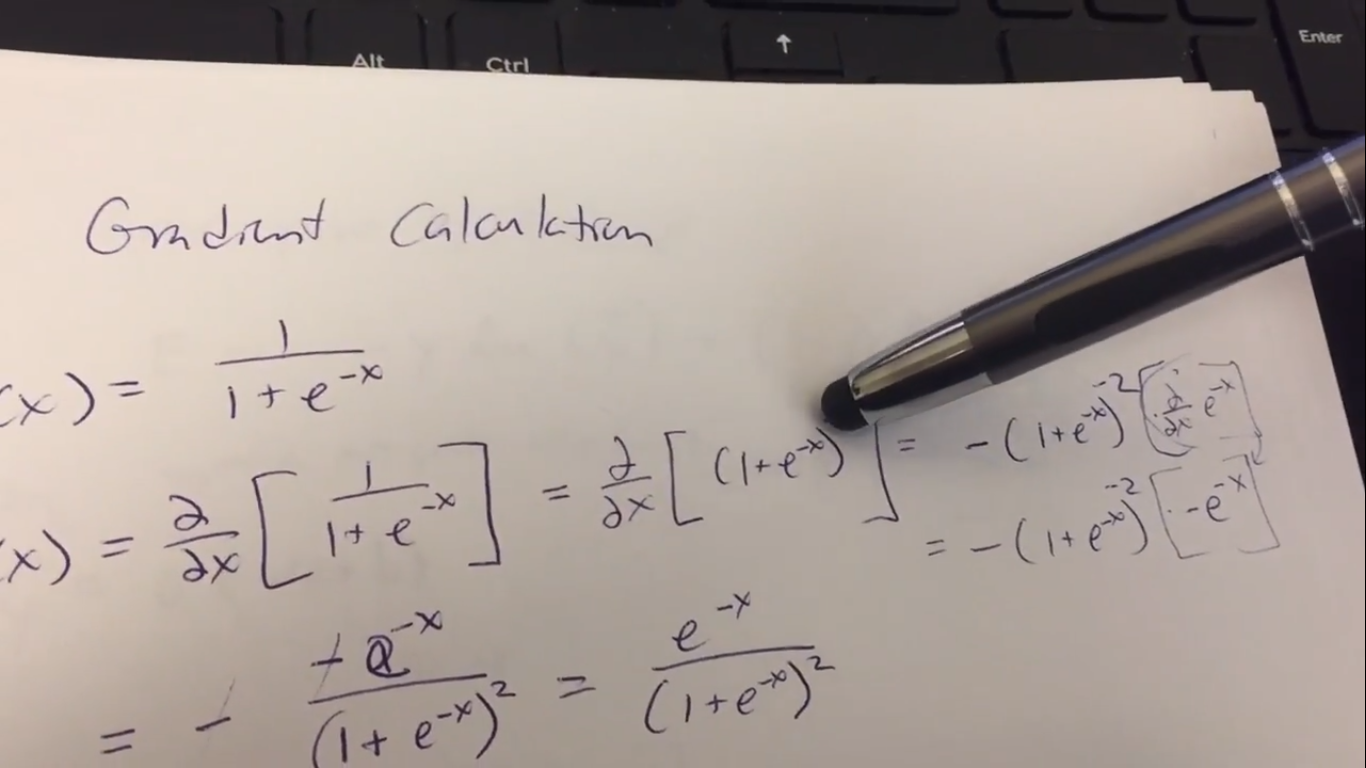 Alt Ctrl ↑ Enter
Gradient Calculation
(x) = 1/(1+e^-x)
x) = ∂/∂x [1/(1+e^-x)] = ∂/∂x [(1+e^-x)] = -(1+e^-x)^-2 [∂/∂x e^-x]
= -(1+e^-x)^-2 [-e^-x]
= - -e^-x/(1+e^-x)^2 = e^-x/(1+e^-x)^2